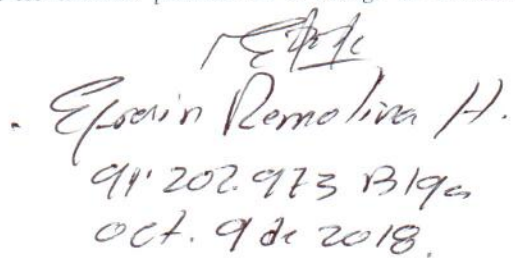 . Efrain Remolina H.
91'202.973 B/ga
oct. 9 de 2018.